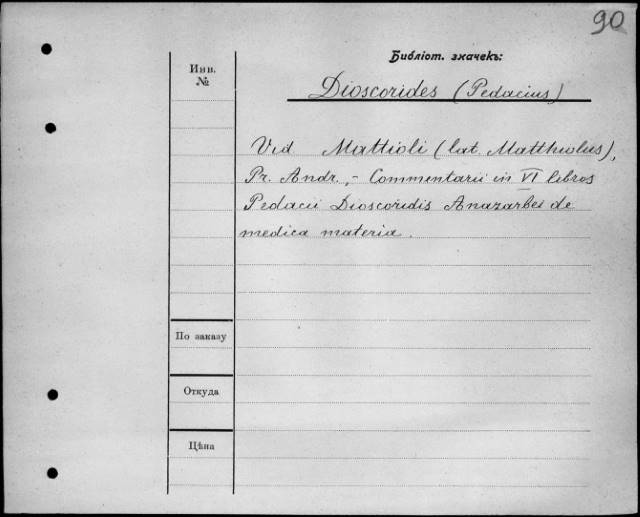 90
Библіот. значекъ:
Инв.
№
Dioscorides (Pedacius)
Vid Mattioli (lat. Matthiolus),
Pr. Andr., - Commentarii in VI libros
Pedacii Dioscoridis Anazarbei de
medica materia.
По заказу
Откуда
Цѣна